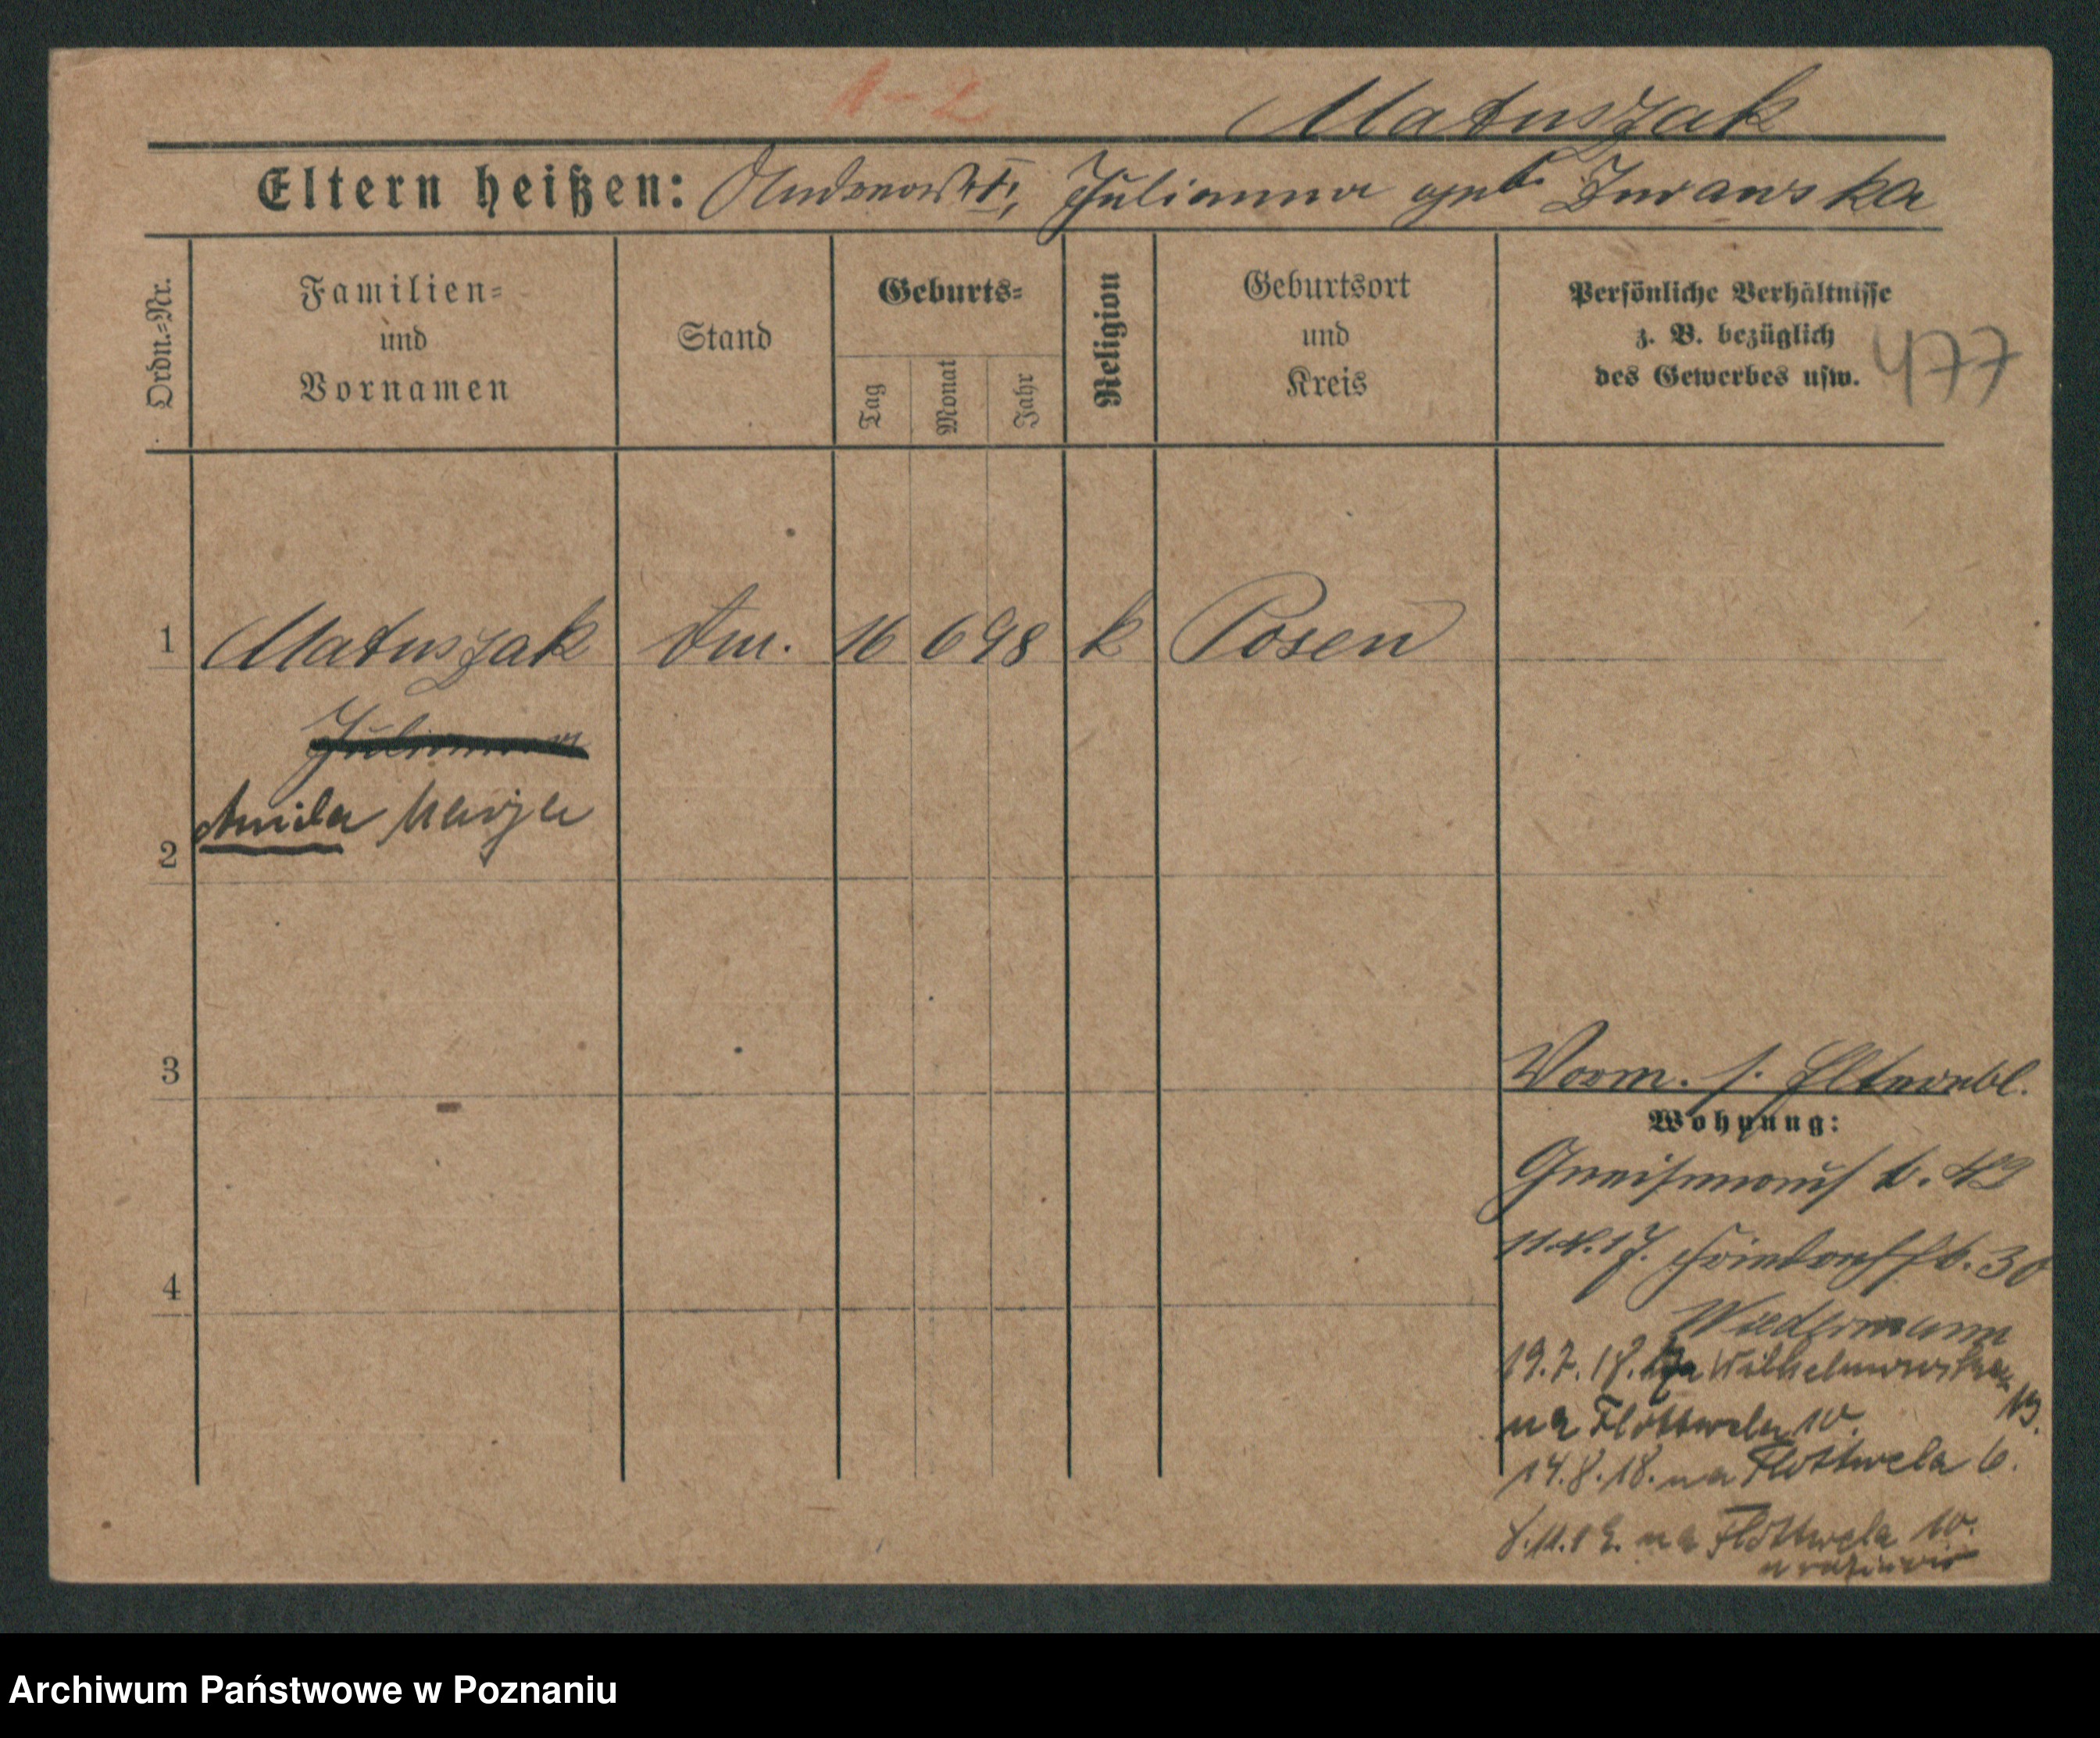 1-2
Matuszak
Eltern heißen: Andreas †, Julianna geb. Zurawska
Ordn.=Nr.
Familien=
und
Vornamen
Stand
Geburts=
Tag
Monat
Jahr
Religion
Geburtsort
und
Kreis
Persönliche Verhältnisse
z. B. bezüglich
des Gewerbes usw.
477
1 Matuszak 16 6 98 k Posen
Julianna
2 Marja
3
Vorm. s. Elternbl.
Wohnung:
Gneisenaustr. 42
17.
4
Wiedermann
19.7.18. Wilhelmowska
13.
na Flottwela 10.
14.8.18. na Flottwela 6.
na Flottwela 10.
Archiwum Państwowe w Poznaniu